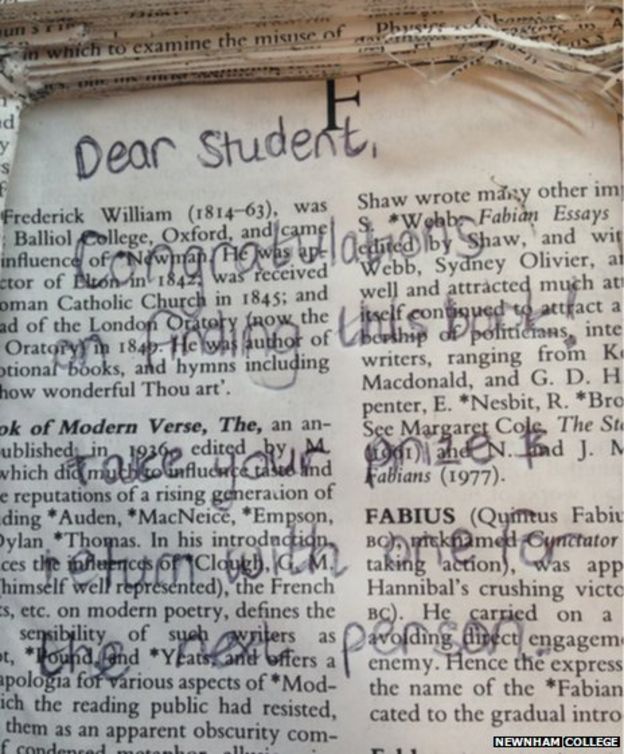 in which to examine the misuse of
F
Dear Student,
Congratulations
on finding this book!
Take your prize &
return with one for
the next person.
Frederick William (1814–63), was
Balliol College, Oxford, and came
influence of *Newman. He was ap-
ctor of Elton in 1842; was received
oman Catholic Church in 1845; and
ad of the London Oratory (now the
Oratory) in 1849. He was author of
otional books, and hymns including
how wonderful Thou art'.
ok of Modern Verse, The, an an-
ublished in 1936, edited by M.
which did much to influence taste and
e reputations of a rising generation of
ding *Auden, *MacNeice, *Empson,
Dylan *Thomas. In his introduction,
ces the influences of *Clough, G. M.
(himself well represented), the French
ts, etc. on modern poetry, defines the
sensibility of such writers as
ot, *Pound, and *Yeats, and offers a
apologia for various aspects of *Mod-
ich the reading public had resisted,
them as an apparent obscurity com-
Shaw wrote many other im
S. *Webb. Fabian Essays
edited by Shaw, and wit
Webb, Sydney Olivier, a
well and attracted much at
itself continued to attract a
bership of politicians, inte
writers, ranging from K
Macdonald, and G. D. H
penter, E. *Nesbit, R. *Bro
See Margaret Cole, The St
(1961) and N. and J. M
Fabians (1977).
FABIUS (Quintus Fabiu
BC) nicknamed Cunctator
taking action), was app
Hannibal's crushing victo
BC). He carried on a
avoiding direct engagem
enemy. Hence the express
the name of the *Fabian
cated to the gradual intro-
NEWNHAM COLLEGE